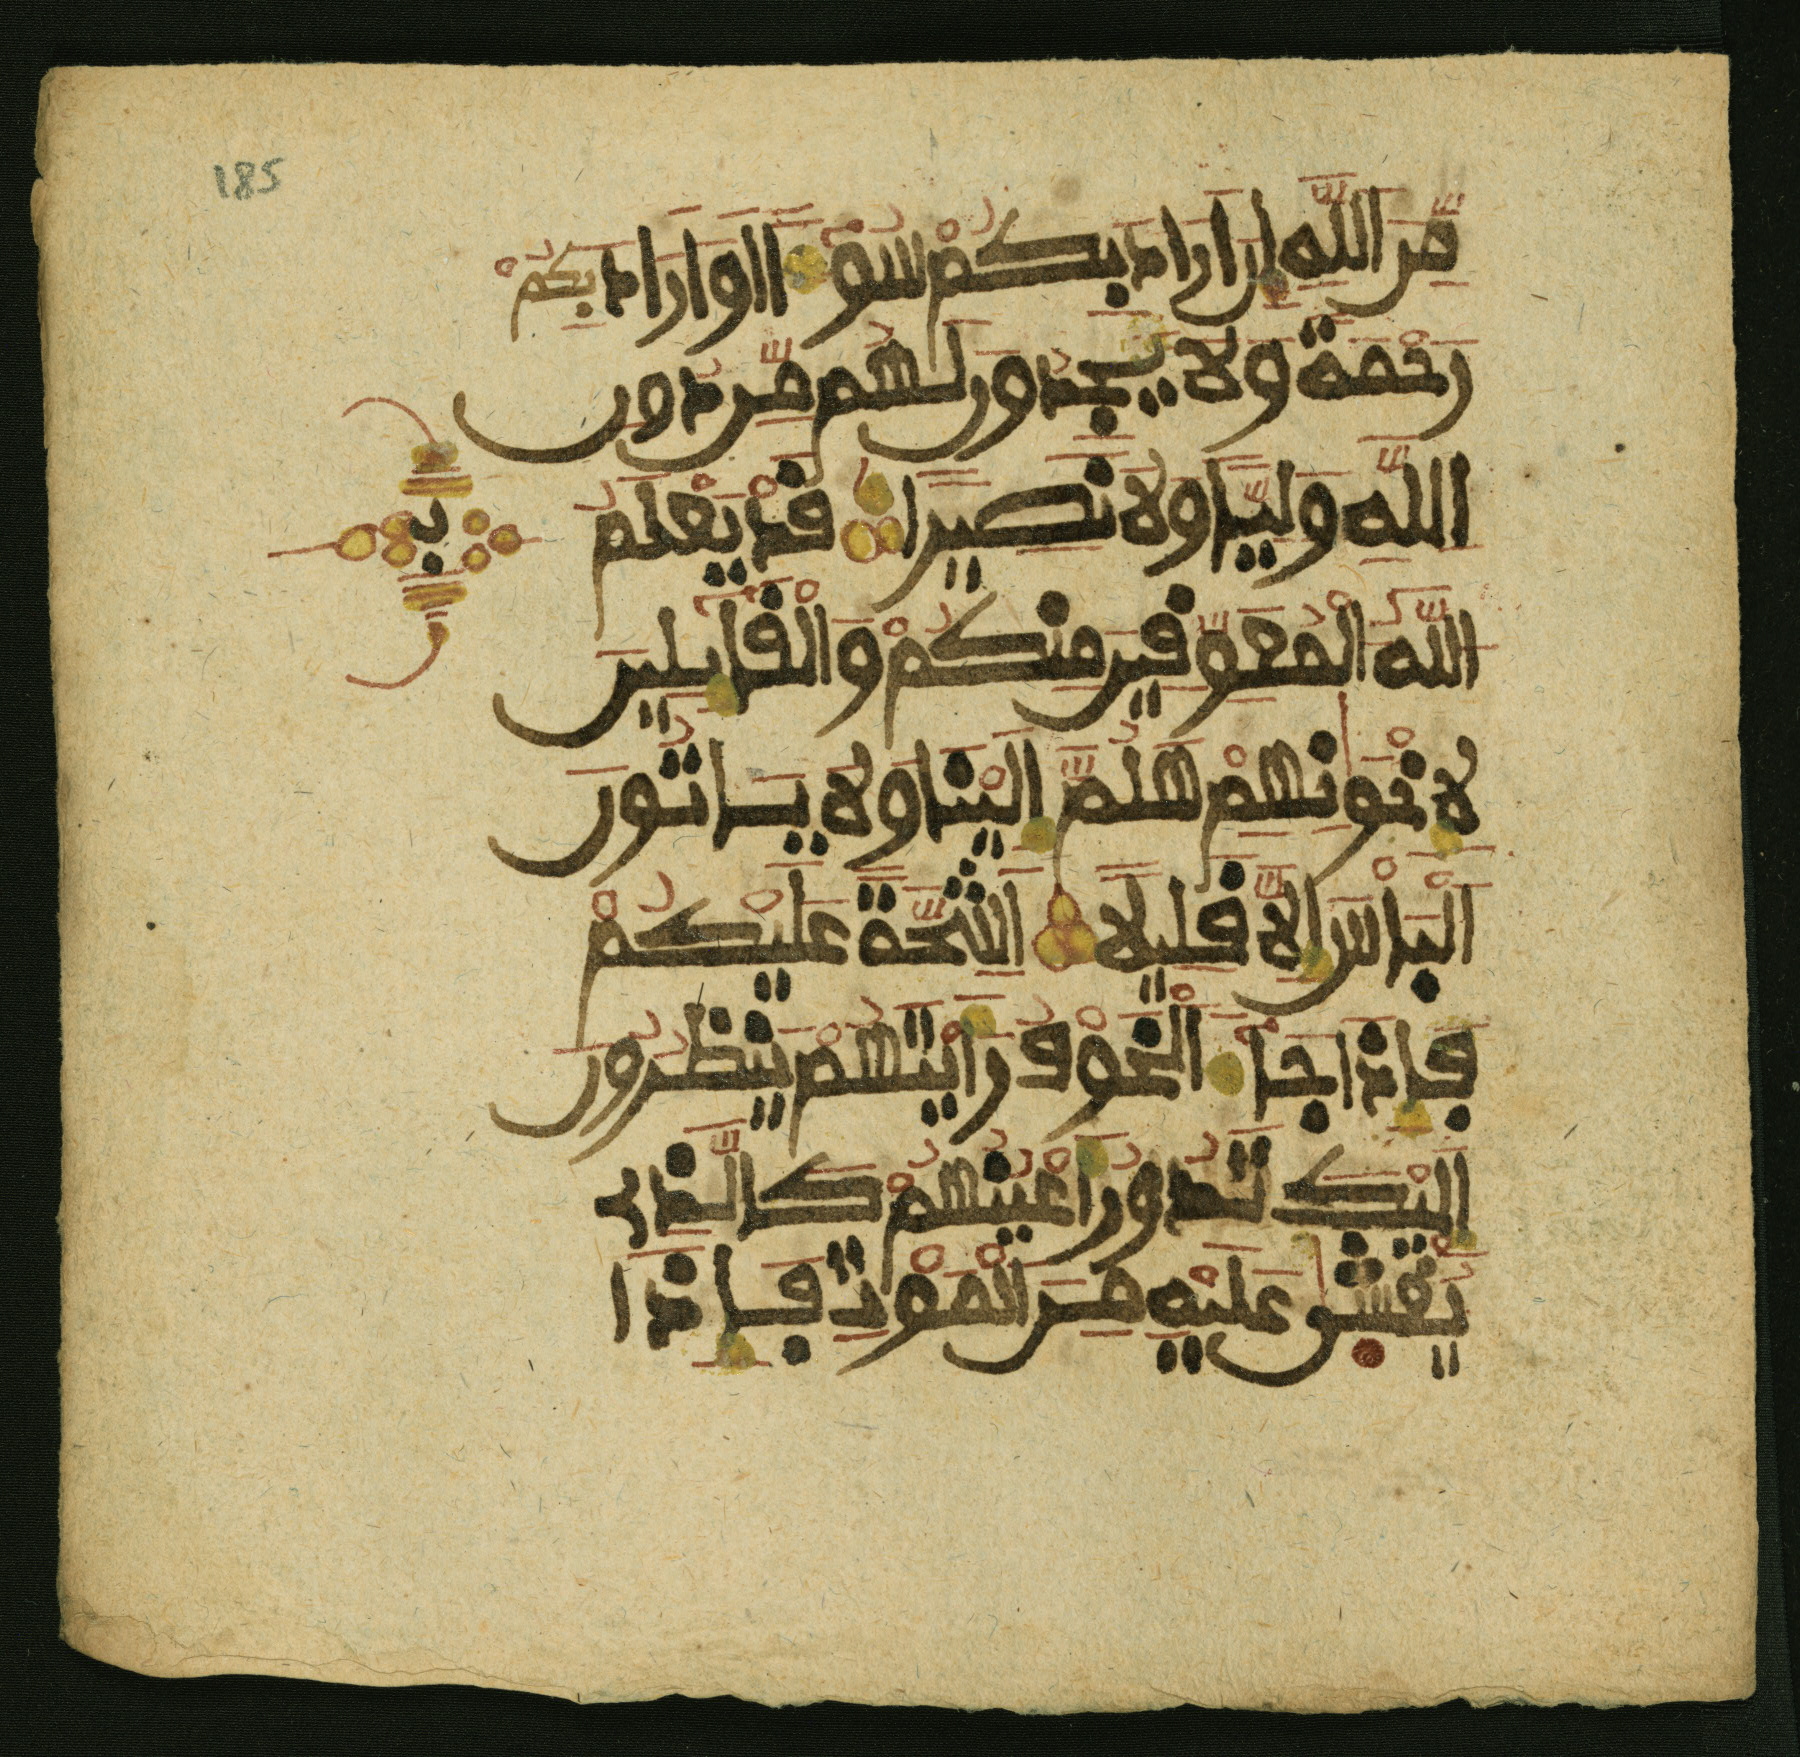 185
من الله ان اراد بكم سوا او اراد بكم
رحمة ولا يجدون لهم من دون
الله وليا ولا نصيرا قد يعلم
الله المعوقين منكم والقايلين
لاخونهم هلم الينا ولا ياتون
الباس الا قليلا اشحة عليكم
فاذا جا الخوف رايتهم ينظرون
اليك تدور اعينهم كالذى
يغشى عليه من الموت فاذا